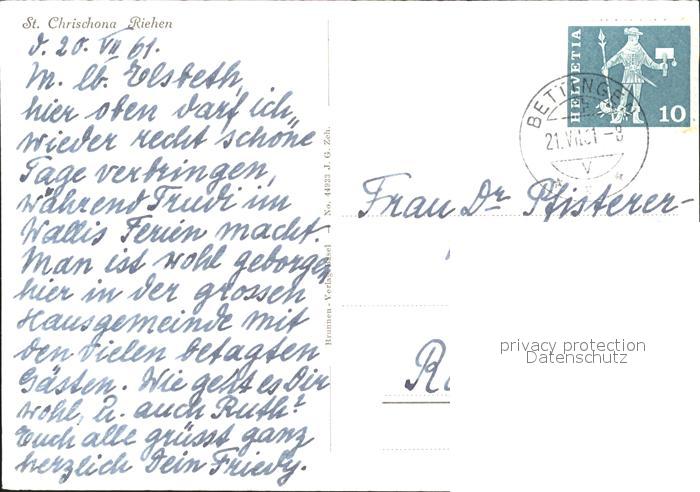 St. Chrischona Riehen
d. 20. VII 61.
M. lb. Elsbeth,
hier oben darf ich
wieder recht schöne
Tage verbringen,
während Trudi im
Wallis Ferien macht.
Man ist wohl geborgen
hier in der grossen
Hausgemeinde mit
den vielen betagten
Gästen. Wie geht es Dir
wohl, u. auch Ruth?
Euch alle grüsst ganz
herzlich Dein Friedy.
Brunnen-Verlag Basel No. 44933 J. G. Zeh.
HELVETIA
10
BETTINGEN
21.VII.61-8
V
Frau Dr Pfisterer-
privacy protection
Datenschutz